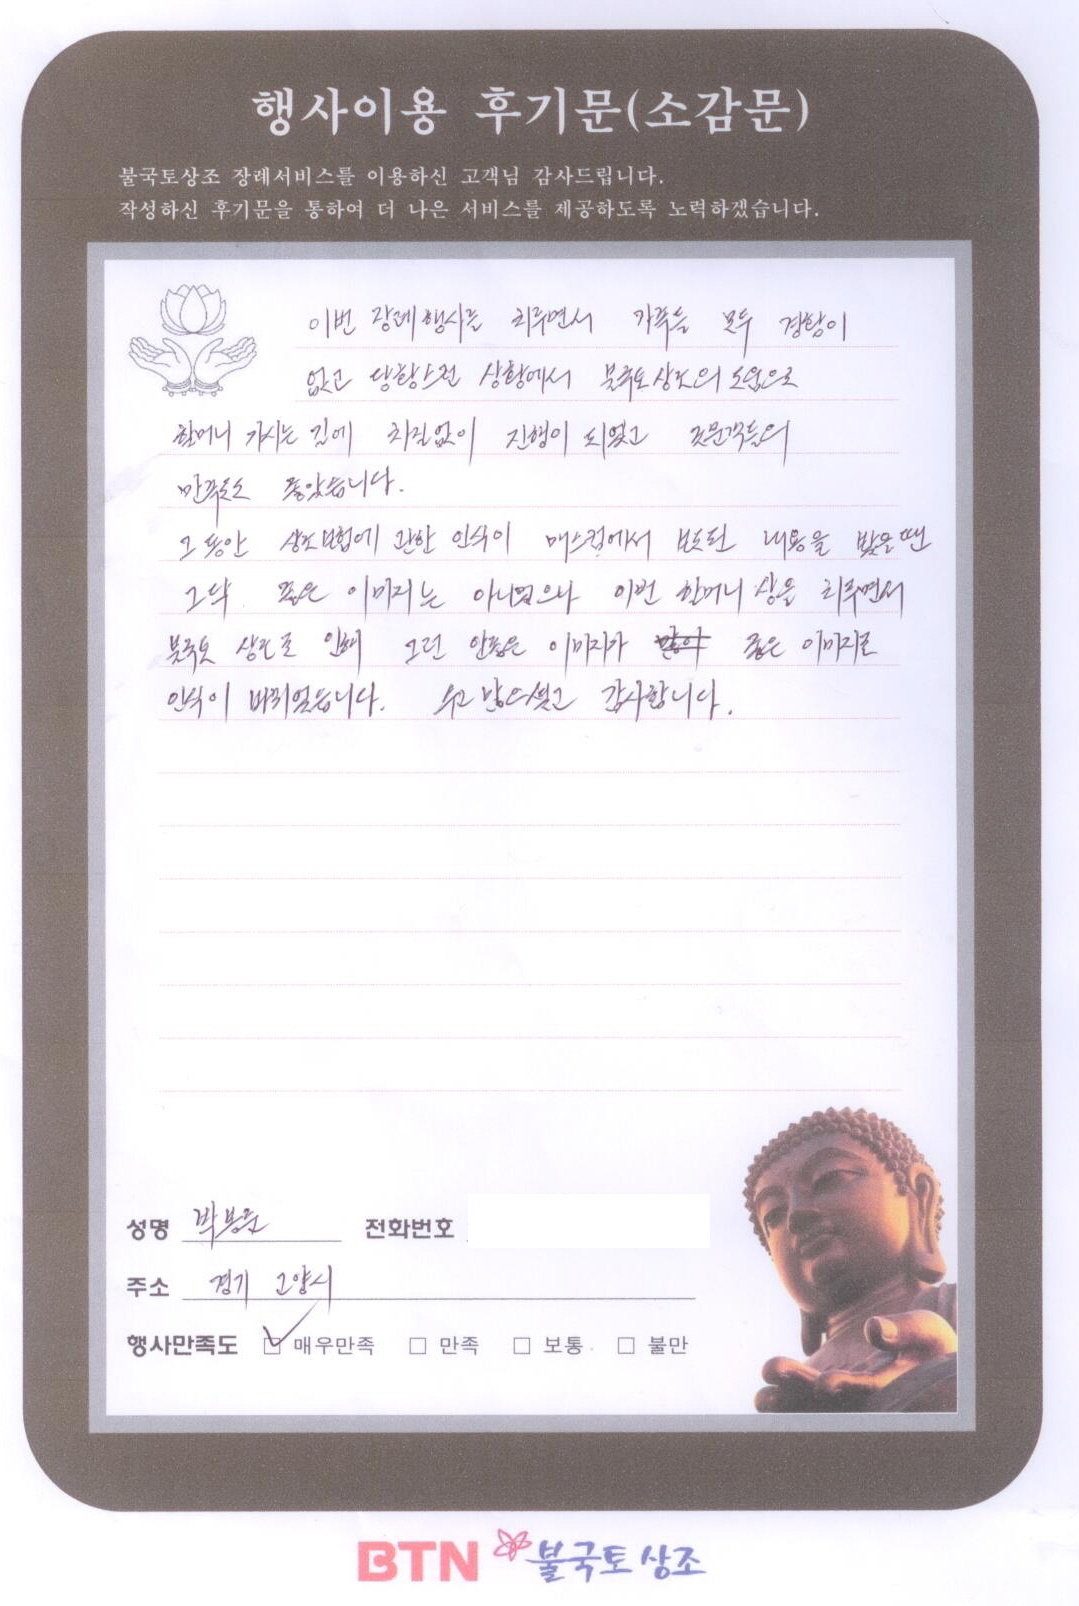 행사이용 후기문(소감문)
불국토상조 장례서비스를 이용하신 고객님 감사드립니다.
작성하신 후기문을 통하여 더 나은 서비스를 제공하도록 노력하겠습니다.
이번 장례행사를 치루면서 가족들 모두 경황이
없고 당황스런 상황에서 불국토상조의 도움으로
할머니 가시는 길에 차질없이 진행이 되었고 조문객들의
만족도도 좋았습니다.
그동안 상조보험에 관한 인식이 매스컴에서 보도된 내용을 봤을땐
그닥 좋은 이미지는 아니었으나 이번 할머니 상을 치루면서
불국토 상조로 인해 그런 안좋은 이미지가 좋은 이미지로
인식이 바뀌었습니다. 수고 많으셨고 감사합니다.
성명 전화번호
주소 경기 고양시
행사만족도 매우만족 만족 보통 불만
BTN 불국토상조